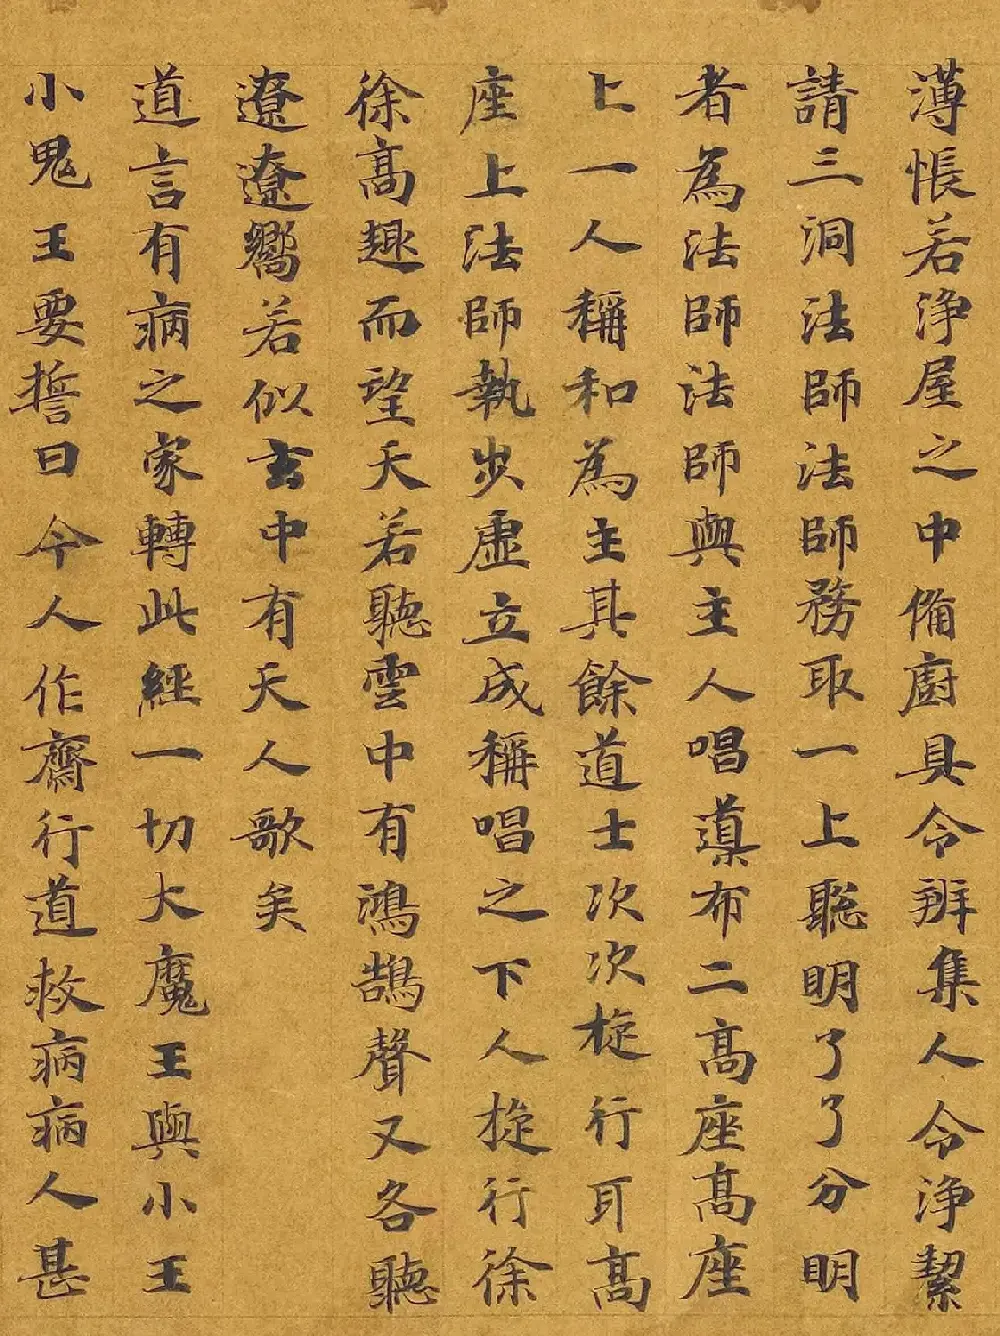 薄悵若浄屋之中俻廚具令辨集人令浄潔
請三洞法師法師務取一上聡明了了分明
者為法師法師與主人唱導布二髙座髙座
上一人稱和為主其餘道士次次㨁行耳髙
座上法師執步虛立成稱唱之下人㨁行徐
徐髙趣而望天若聽雲中有鴻鵠聲又各聽
遼遼嚮若似玄中有天人歌矣
道言有病之家轉此經一切大魔王與小王
小鬼王要誓曰今人作齋行道救病病人甚